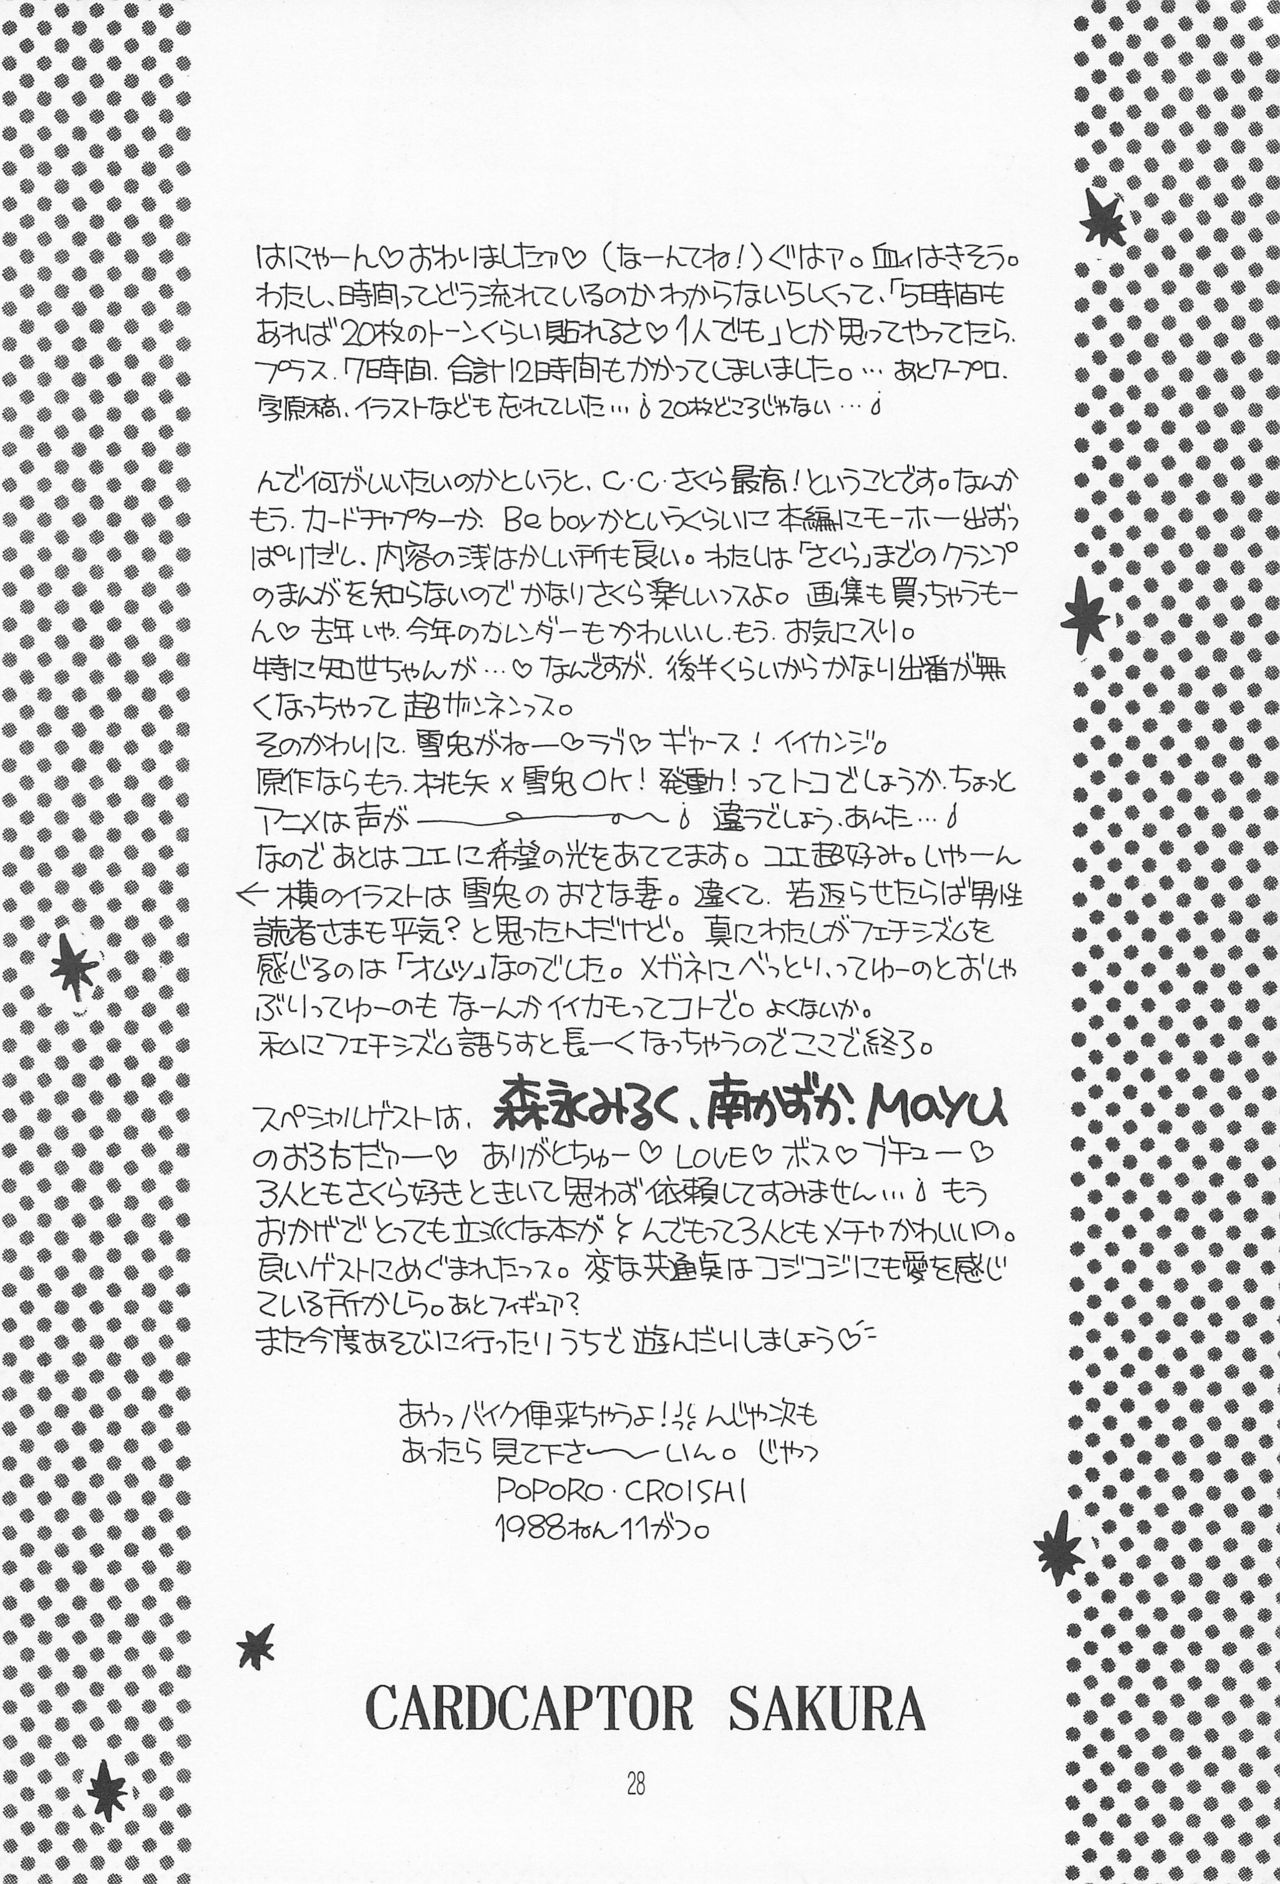 はにゃーん♡おわりましたァ♡(なーんてね!)ぐはァ。血ィはきそう。
わたし、時間ってどう流れているのかわからないらしくって、「5時間も
あれば20枚のトーンくらい貼れるさ♡1人でも」とか思ってやってたら、
プラス、7時間、合計12時間もかかってしまいました。…あとワープロ、
字原稿、イラストなども忘れていた…20枚どころじゃない…
んで何がいいたいのかというと、C・C・さくら最高!ということです。なんか
もう、カードチャプターか、Be boyかというくらいに本編にモーホー出まおっ
ぱりだし、内容の浅はかしい所も良い。わたしは「さくら」までのクランプ
のまんがを知らないのでかなりさくら楽しいっスよ。画集も買っちゃうもー
ん♡去年いや、今年のカレンダーもかわいいし、もう、お気に入り。
特に知世ちゃんが…♡なんですが、後半くらいからかなり出番が無
くなっちゃって超ザンネンっス。
そのかわりに、雪兎がねー♡ラブ♡ギャース!イイカンジ。
原作ならもう、桃矢×雪兎OK!発動!ってトコでしょうか、ちょっと
アニメは声が――――〜違うでしょう、あんた…
なのであとはユエに希望の光をあててます。ユエ超好み。いやーん
←横のイラストは雪兎のおさな妻。違くて、若返らせたらば男性
読者さまも平気?と思ったんだけど。真にわたしがフェチシズムを
感じるのは「オムツ」なのでした。メガネにべっとり、ってゆーのとおしゃ
ぶりってゆーのもなーんかイイカモってコトで。よくないか。
私にフェチシズム語らすと長ーくなっちゃうのでここで終了。
スペシャルゲストは、森永みるく、南かずか、Mayu
のお3方だァー♡ありがとちゅー♡LOVE♡ボス♡ブチュー♡
3人ともさくら好きときいて思わず依頼してすみません…もう
おかげでとっても立派な本がとんでもって3人ともメチャかわいいの。
良いゲストにめぐまれたっス。変な共通点はコジコジにも愛を感じ
ている所かしら。あとフィギュア?
また今度あそびに行ったりうちで遊んだりしましょう♡
あうっバイク便来ちゃうよ!んじゃ次も
あったら見て下さ〜〜いん。じゃっ
POPORO・CROISHI
1988ねん11がつ。
CARDCAPTOR SAKURA
28